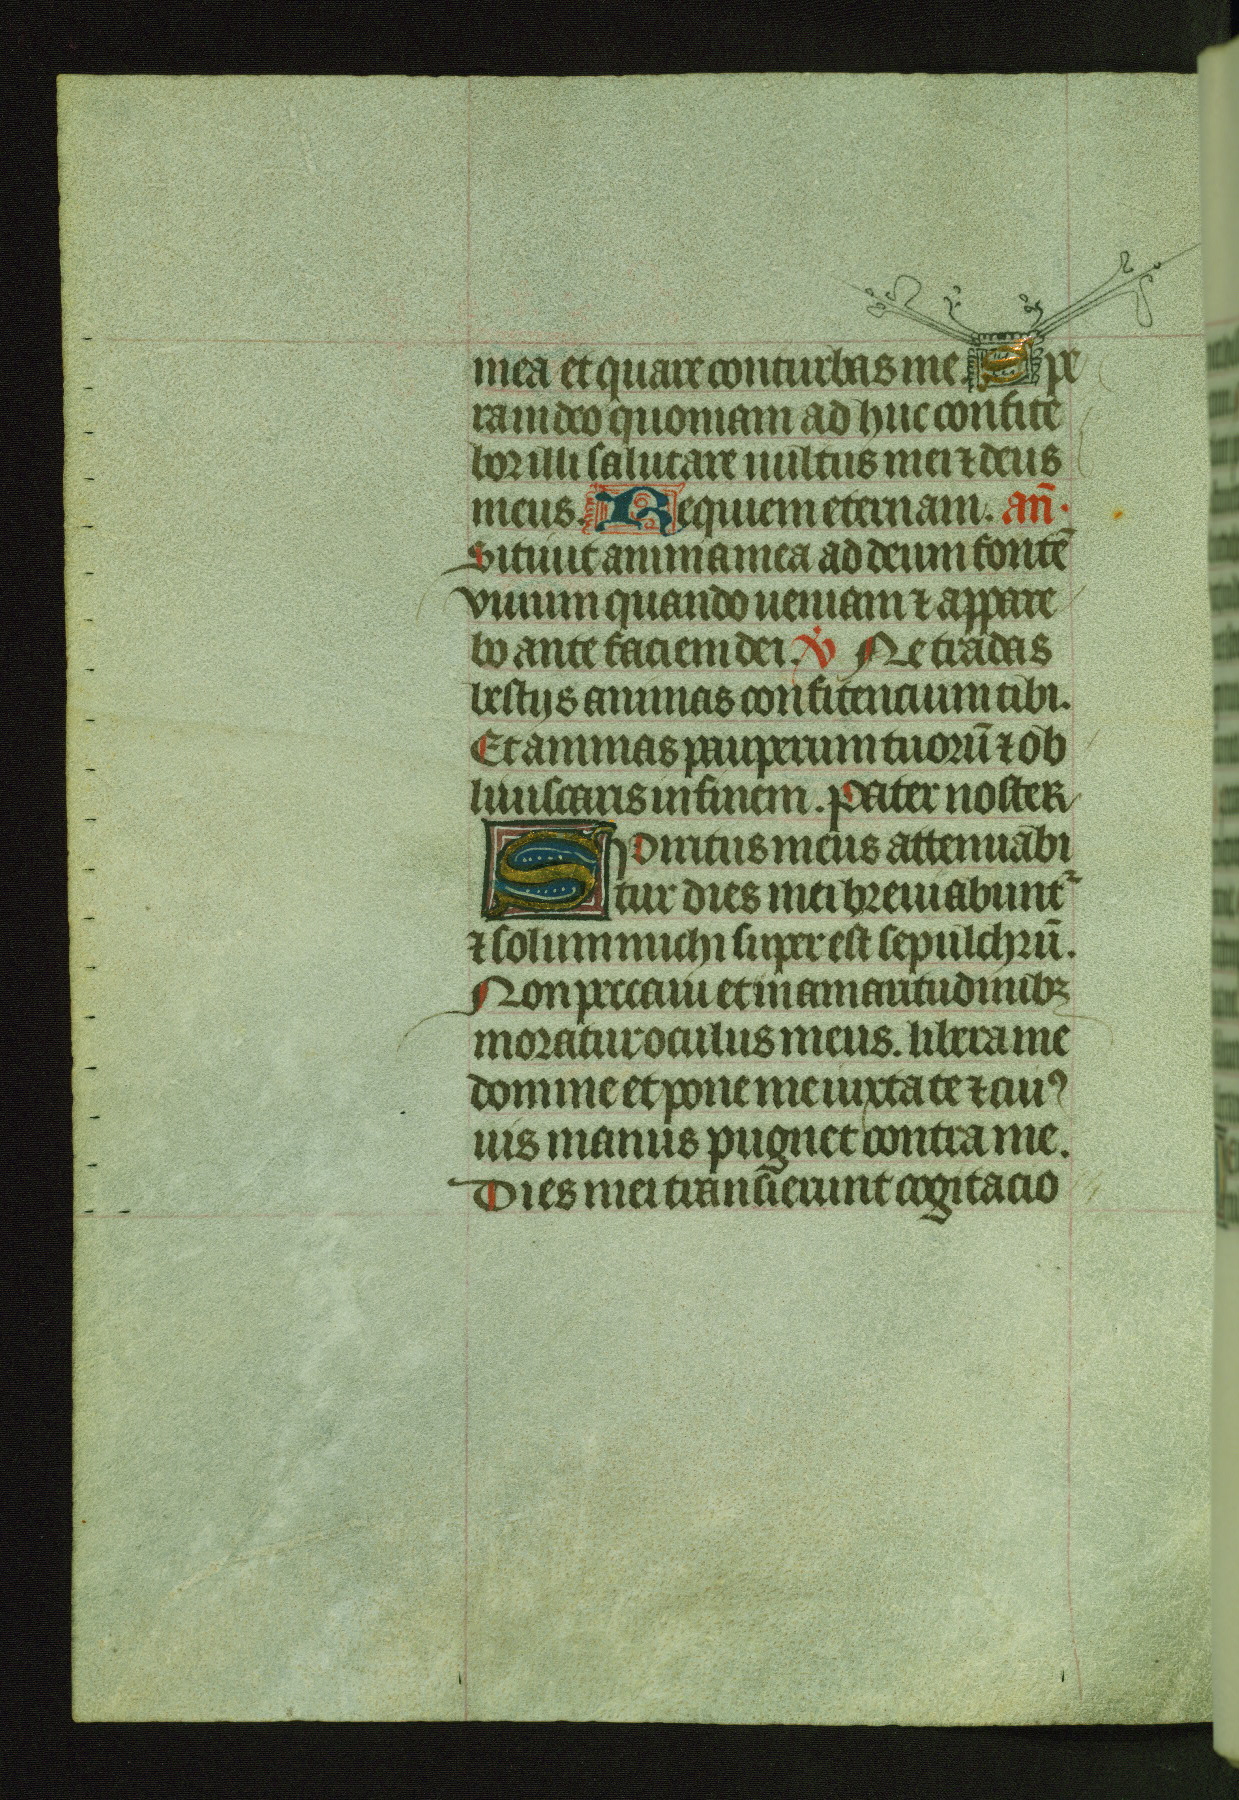 mea et quare conturbas me. Spe
ra in deo quoniam ad huc confite
bor illi salutare uultus mei ⁊ deus
meus. Requiem eternam. an̄.
Sitiuit anima mea ad deum fontē
viuum quando ueniam ⁊ appare
bo ante faciem dei. V̇ Ne tradas
bestijs animas confitencium tibi.
Et animas pauperum tuorū ⁊ ob
liuiscaris in finem. Pater noster
Spiritus meus attenuabi
tur dies mei breuiabunt᷑
⁊ solum michi super est sepulchrū.
Non peccaui et in amaritudinibꝫ
moratur oculus meus. libera me
domine et pone me iuxta te ⁊ cuiꝰ
uis manus pugnet contra me.
Dies mei transierunt cogitacio